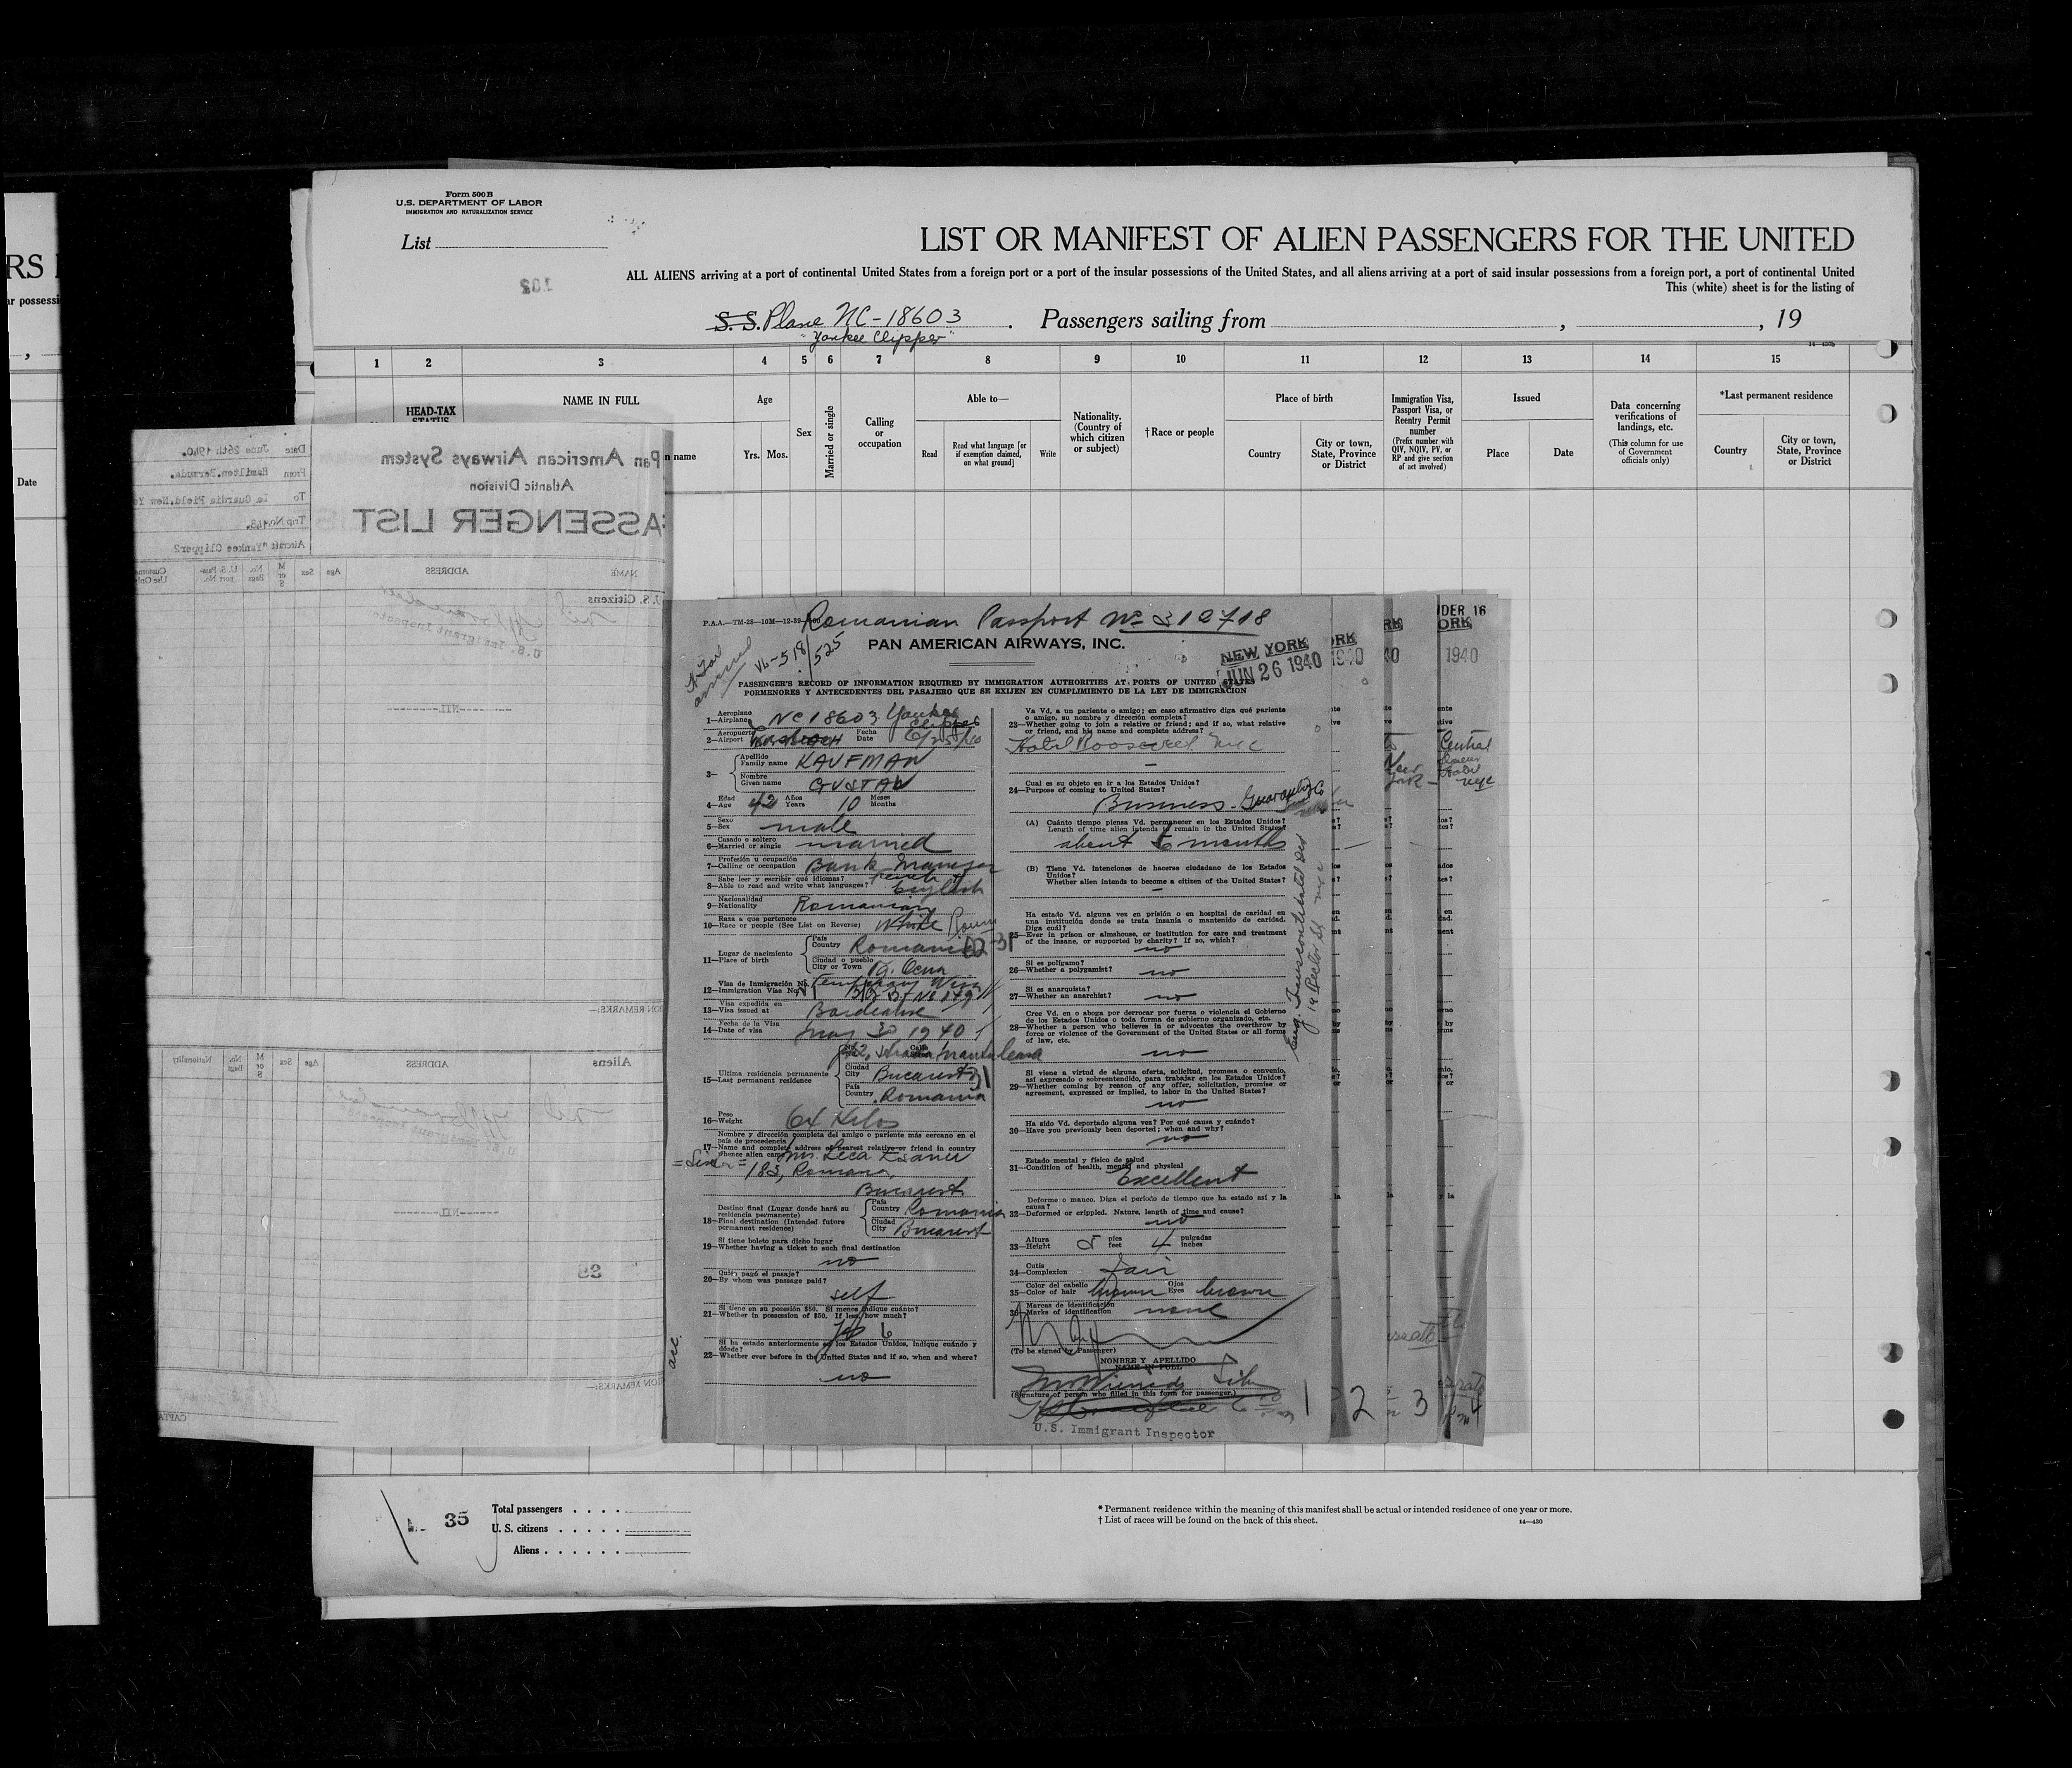 Form 500B
U.S. DEPARTMENT OF LABOR
IMMIGRATION AND NATURALIZATION SERVICE
List
LIST OR MANIFEST OF ALIEN PASSENGERS FOR THE UNITED
ALL ALIENS arriving at a port of continental United States from a foreign port or a port of the insular possessions of the United States, and all aliens arriving at a port of said insular possessions from a foreign port, a port of continental United
This (white) sheet is for the listing of
102
S. S. Plane NC-18603 . Passengers sailing from , , 19
"Yankee Clipper"
1 2 3 4 5 6 7 8 9 10 11 12 13 14 15
HEAD-TAX STATUS
NAME IN FULL
n name
Age
Yrs. Mos.
Sex
Married or single
Calling or occupation
Able to—
Read
Read what language [or if exemption claimed, on what ground]
Write
Nationality. (Country of which citizen or subject)
†Race or people
Place of birth
Country
City or town, State, Province or District
Immigration Visa, Passport Visa, or Reentry Permit number
(Prefix number with QIV, NQIV, PV, or RP and give section of act involved)
Issued
Place
Date
Data concerning verifications of landings, etc.
(This column for use of Government officials only)
*Last permanent residence
Country
City or town, State, Province or District
RS
ar possessi
Date
Pan American Airways System
Atlantic Division
PASSENGER LIST
Date June 26th 1940.
From Hamilton.Bermuda.
To La Guardia Field.New Yo
Trip No.148.
Aircraft "Yankee Clipper2
NAME ADDRESS Age Sex M or S No. Bags U. S. Pass-port No. Customs Use Only
U.S. Citizens
Nil
U.S. Immigrant Inspector
-------NIL-------
ON REMARKS:—
Aliens ADDRESS Age Sex M or S No. Bags Nationality
Nil
-------NIL-------
83
ON REMARKS:—
CAPTA
P.A.A.—TM-28—10M—12-39
Romanian Passport No 312718
PAN AMERICAN AIRWAYS, INC.
NEW YORK
JUN 26 1940
V6-518/525
PASSENGER'S RECORD OF INFORMATION REQUIRED BY IMMIGRATION AUTHORITIES AT PORTS OF UNITED STATES
PORMENORES Y ANTECEDENTES DEL PASAJERO QUE SE EXIJEN EN CUMPLIMIENTO DE LA LEY DE IMMIGRACION
Aeroplano
1—Airplane NC18603 Yankee Clipper
Aeropuerto Fecha
2—Airport Date 6/25/40
3— Apellido
Family name KAUFMAN
Nombre
Given name GUSTAV
Edad Años Meses
4—Age 42 Years 10 Months
Sexo
5—Sex male
Casado o soltero
6—Married or single married
Profesión u ocupación
7—Calling or occupation Bank Manager
Sabe leer y escribir qué idiomas?
8—Able to read and write what languages? French English
Nacionalidad
9—Nationality Romanian
Raza a que pertenece
10—Race or people (See List on Reverse) White Roum
Lugar de nacimiento
11—Place of birth
País
Country Romania
Ciudad o pueblo
City or Town Tg. Ocna
Visa de Inmigración No.
12—Immigration Visa No.
Visa expedida en
13—Visa issued at Bordeaux
Fecha de la Visa
14—Date of visa May 30 1940
Ultima residencia permanente
15—Last permanent residence
Ciudad
City Bucarest
País
Country Romania
Peso
16—Weight 64 Kilos
Nombre y dirección completa del amigo o pariente más cercano en el país de procedencia
17—Name and complete address of nearest relative or friend in country whence alien came
183, Romana
Bucarest
Destino final (Lugar donde hará su residencia permanente)
18—Final destination (Intended future permanent residence)
País
Country Romania
Ciudad
City Bucarest
Si tiene boleto para dicho lugar
19—Whether having a ticket to such final destination
no
Quién pagó el pasaje?
20—By whom was passage paid?
self
Si tiene en su posesión $50. Si menos indique cuánto?
21—Whether in possession of $50. If less, how much?
Si ha estado anteriormente en los Estados Unidos, indique cuándo y dónde?
22—Whether ever before in the United States and if so, when and where?
no
Va Vd. a un pariente o amigo; en caso afirmativo diga qué pariente o amigo, su nombre y dirección completa?
23—Whether going to join a relative or friend; and if so, what relative or friend, and his name and complete address?
Hotel Roosevelt NYC
Cual es su objeto en ir a los Estados Unidos?
24—Purpose of coming to United States?
Business
(A) Cuánto tiempo piensa Vd. permanecer en los Estados Unidos?
Length of time alien intends to remain in the United States?
about 6 months
(B) Tiene Vd. intenciones de hacerse ciudadano de los Estados Unidos?
Whether alien intends to become a citizen of the United States?
Ha estado Vd. alguna vez en prisión o en hospital de caridad en una institución donde se trata insania o mantenido de caridad. Diga cuál?
25—Ever in prison or almshouse, or institution for care and treatment of the insane, or supported by charity? If so, which?
no
Si es polígamo?
26—Whether a polygamist? no
Si es anarquista?
27—Whether an anarchist? no
Cree Vd. en o aboga por derrocar por fuerza o violencia el Gobierno de los Estados Unidos o toda forma de gobierno organizado, etc.
28—Whether a person who believes in or advocates the overthrow by force or violence of the Government of the United States or all forms of law, etc.
no
Si viene a virtud de alguna oferta, solicitud, promesa o convenio, así expresado o sobreentendido, para trabajar en los Estados Unidos?
29—Whether coming by reason of any offer, solicitation, promise or agreement, expressed or implied, to labor in the United States?
no
Ha sido Vd. deportado alguna vez? Por qué causa y cuándo?
30—Have you previously been deported; when and why?
no
Estado mental y físico de salud
31—Condition of health, mental and physical
Excellent
Deforme o manco. Diga el período de tiempo que ha estado así y la causa?
32—Deformed or crippled. Nature, length of time and cause?
no
Altura pies pulgadas
33—Height 5 feet 4 inches
Cutis
34—Complexion fair
Color del cabello Ojos
35—Color of hair brown Eyes brown
Marcas de identificación
36—Marks of identification none
(To be signed by Passenger)
NOMBRE Y APELLIDO
NAME IN FULL
(Signature of person who filled in this form for passenger.)
U.S. Immigrant Inspector
1 2 3 4
NDER 16
ORK
1940
Central
Hotel
NYC
New York
35
Total passengers . . . .
U. S. citizens . . . . .
Aliens . . . . . .
* Permanent residence within the meaning of this manifest shall be actual or intended residence of one year or more.
† List of races will be found on the back of this sheet.
14—430